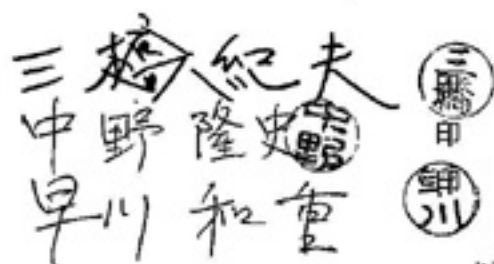 三橋紀夫 三橋
印
中野隆史 中野
早川和重 早川